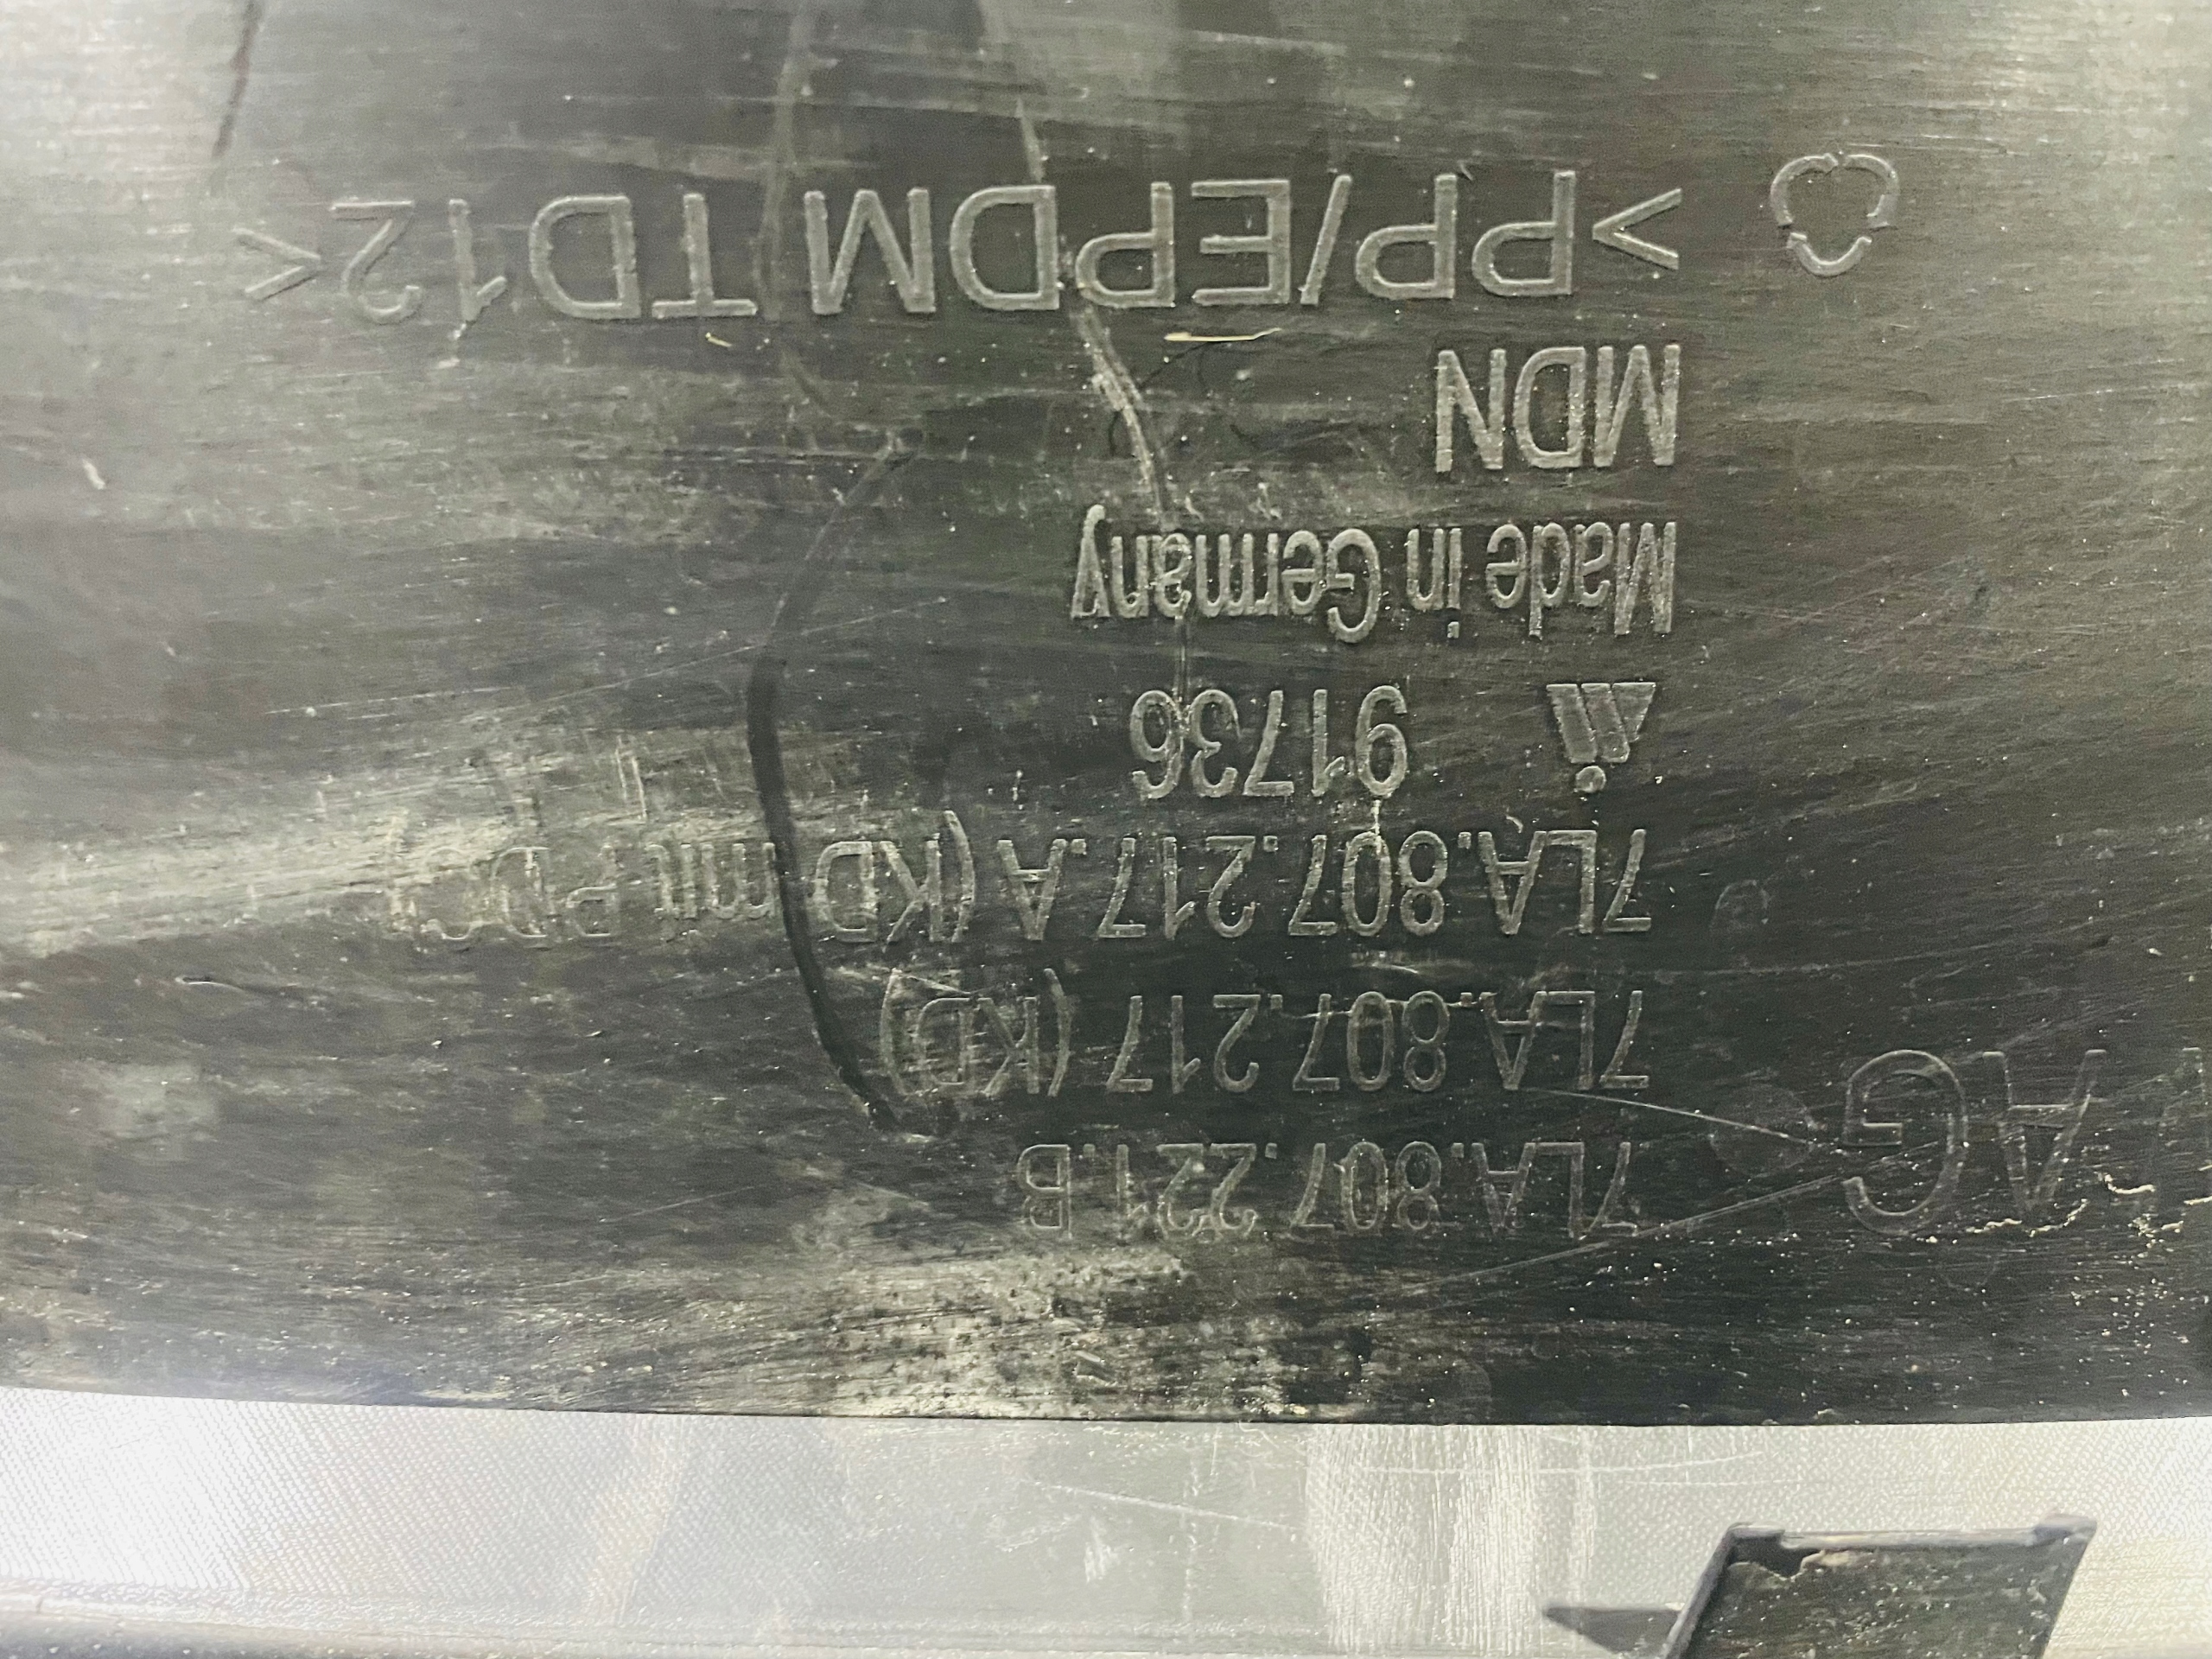 AG
7LA.807.221.B
7LA.807.217 (KD)
7LA.807.217.A (KD mit PDC)
91736
Made in Germany
MDN
>PP/EPDM TD12<